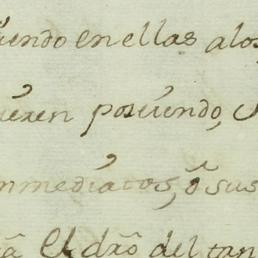 iendo en ellas a los
uieren poseiendo, 
inmediatos, ò sus
El dro del tan